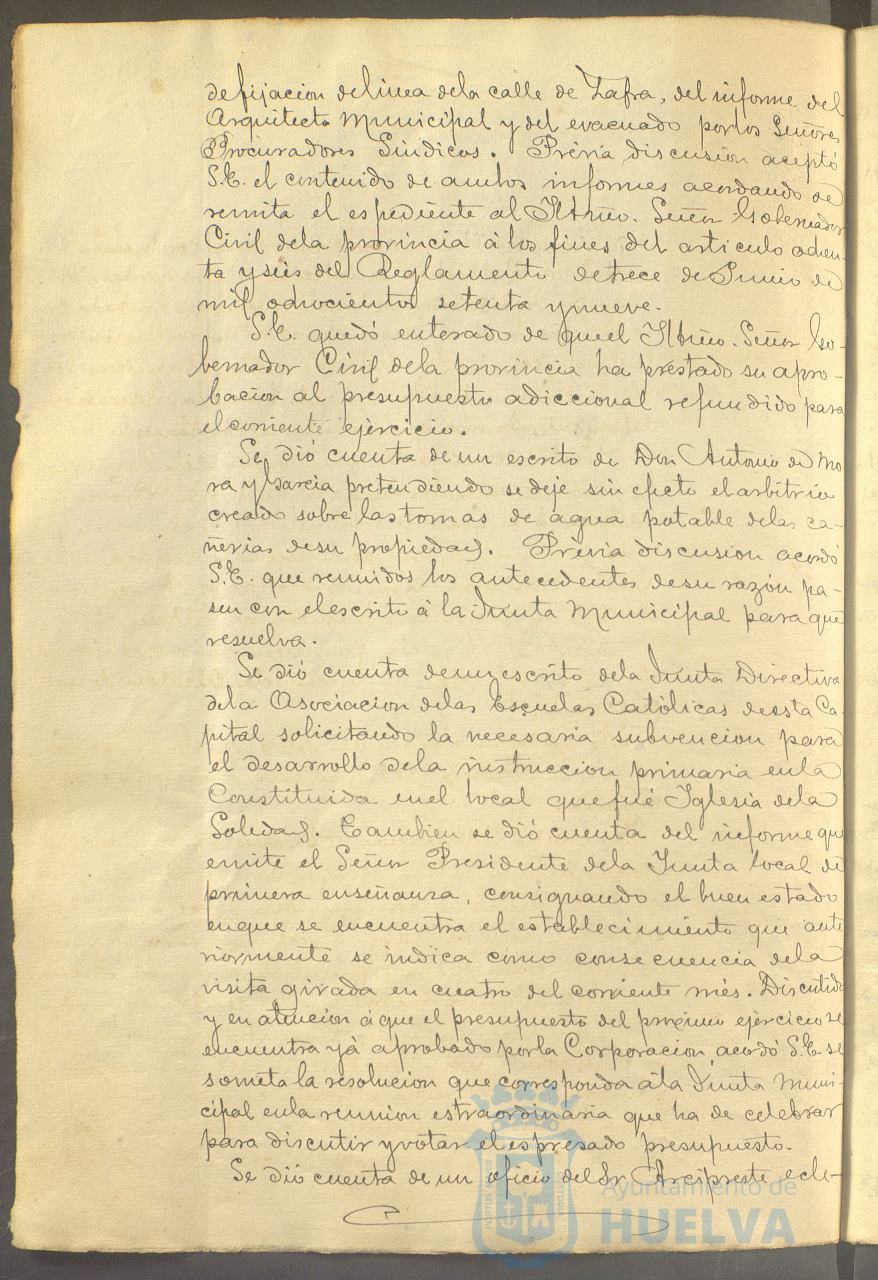 de fijacion de linea de la calle de Zafra, del informe del
Arquitecto Municipal y del evacuado por los Señores
Procuradores Sindicos. Prévia discusion aceptó
S.E. el contenido de ambos informes acordando se
remita el espediente al Iltmo. Señor Gobernador
Civil de la provincia á los fines del articulo ochen-
ta y seis del Reglamento de trece de Junio de
mil ochocientos setenta y nueve.
S.E. quedó enterado de que el Iltmo. Señor Go-
bernador Civil de la provincia ha prestado su apro-
bacion al presupuesto adiccional refundido para
el corriente ejercicio.
Se dió cuenta de un escrito de Don Antonio de Mo
ra y Garcia pretendiendo se deje sin efecto el arbitrio
creado sobre las tomas de agua potable de las ca-
ñerias de su propiedad. Prévia discusion acordó
S.E. que reunidos los antecedentes de su razón pa-
sen con el escrito á la Junta Municipal para que
resuelva.
Se dió cuenta de un escrito de la Junta Directiva
de la Asociacion de las Escuelas Católicas de esta Ca-
pital solicitando la necesaria subvencion para
el desarrollo de la instruccion primaria en la
Constituida en el local que fué Iglesia de la
Soledad. Tambien se dió cuenta del informe que
emite el Señor Presidente de la Junta local de
primera enseñanza, consignando el buen estado
en que se encuentra el establecimiento que ante
riormente se indica como consecuencia de la
visita girada en cuatro del corriente més. Discutido
y en atencion á que el presupuesto del próximo ejercicio se
encuentra yá aprobado por la Corporacion, acordó S.E. se
someta la resolucion que corresponda á la Junta Muni-
cipal en la reunion estraordinaria que ha de celebrar
para discutir y votar el espresado presupuesto.
Se dió cuenta de un oficio del Sr. Arcipreste ecle-
Ayuntamiento de
HUELVA